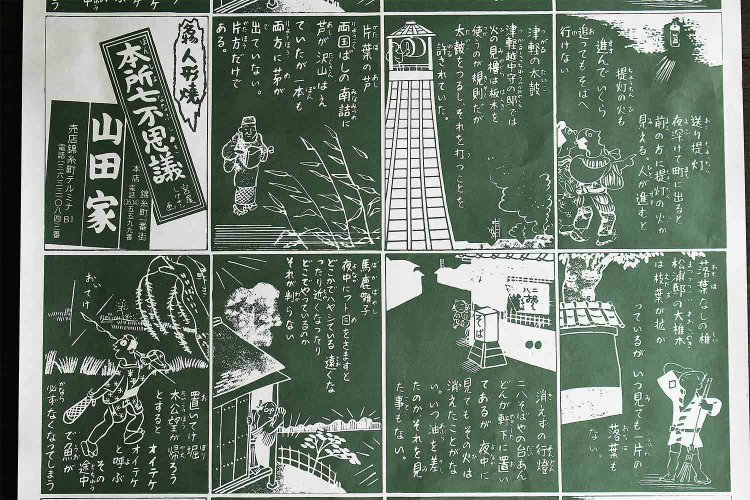 送り提灯
夜深けて町に出ると
前の方に提灯の火が
見える、人が進むと
提灯の火も
進んでいくら
追ってもそばへ
行けない
津軽の太鼓
津軽越中守の邸では
火の見櫓は板木を
使うのが規則だが
太鼓をつるし、それを打つことを
許されていた。
片葉の芦
両国ばしの南詰に
芦が沢山はえ
ていたが一本も
両方に茅が
出ていない。
片方だけで
ある。
名物 人形焼
本所七不思議
宮尾しげを画
山田家
本店 錦糸町一番街
売店錦糸町テルミナB1
落葉なしの椎
松浦邸の大椎木
は枝葉が拡が
っているが いつ見ても一片の
落葉も
ない。
二八
そば
消えずの行燈
二八そばやの台あん
どんが軒下に置い
てあるが夜中に
見てもその火は
消えたことがな
い。いつ油を差し
たのかそれを見
た事もない。
馬鹿囃子
夜中にフト目をさますと
どこかでハヤシている遠くな
ったり近くなったり
どこでやっているのか
それが判らない
おいてけ
置いてけ堀
太公望が帰ろう
とすると オイテケ
オイテケ
と呼ぶ
その途中
で魚が
必ずなくなってしまう